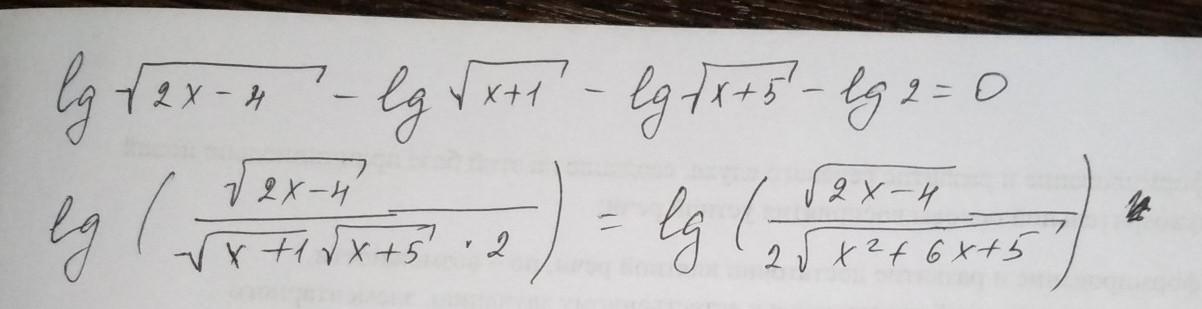 lg √(2x-4) - lg √(x+1) - lg √(x+5) - lg 2 = 0
lg ( √(2x-4) / (√(x+1) √(x+5) · 2) ) = lg ( √(2x-4) / (2√(x²+6x+5)) )